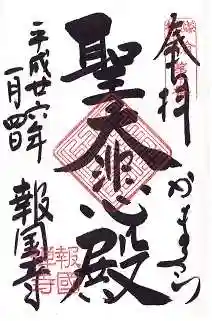 奉拝 かまくら
聖大悲殿
平成廿六年
一月四日
報国寺
報國
禅寺